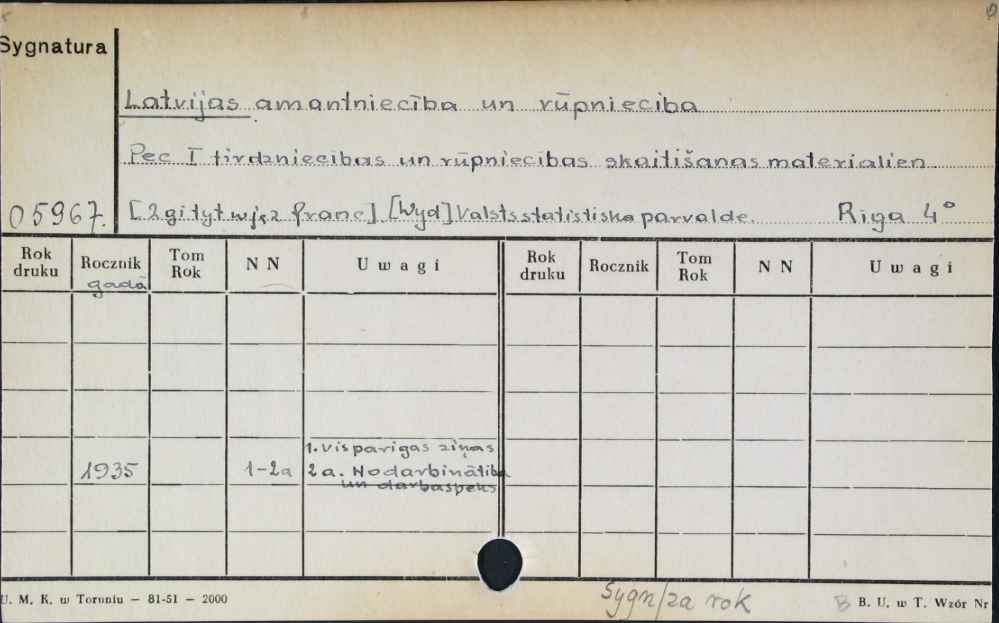 Sygnatura
Latvijas amantniecība un rūpniecība
Pec I tirdzniecības un rūpniecības skaitīšanas materialien
05967. [2gi tyt w jęz franc] [Wyd] Valsts statistiska parvalde. Riga 4°
Rok druku Rocznik Tom Rok N N Uwagi Rok druku Rocznik Tom Rok N N Uwagi
gadā
1. Visparīgas ziņas
1935 1-2a 2a. Nodarbinātība
un darbaspeks
U. M. K. w Toruniu — 81-51 — 2000 Sygn/za rok B B. U. w T. Wzór Nr